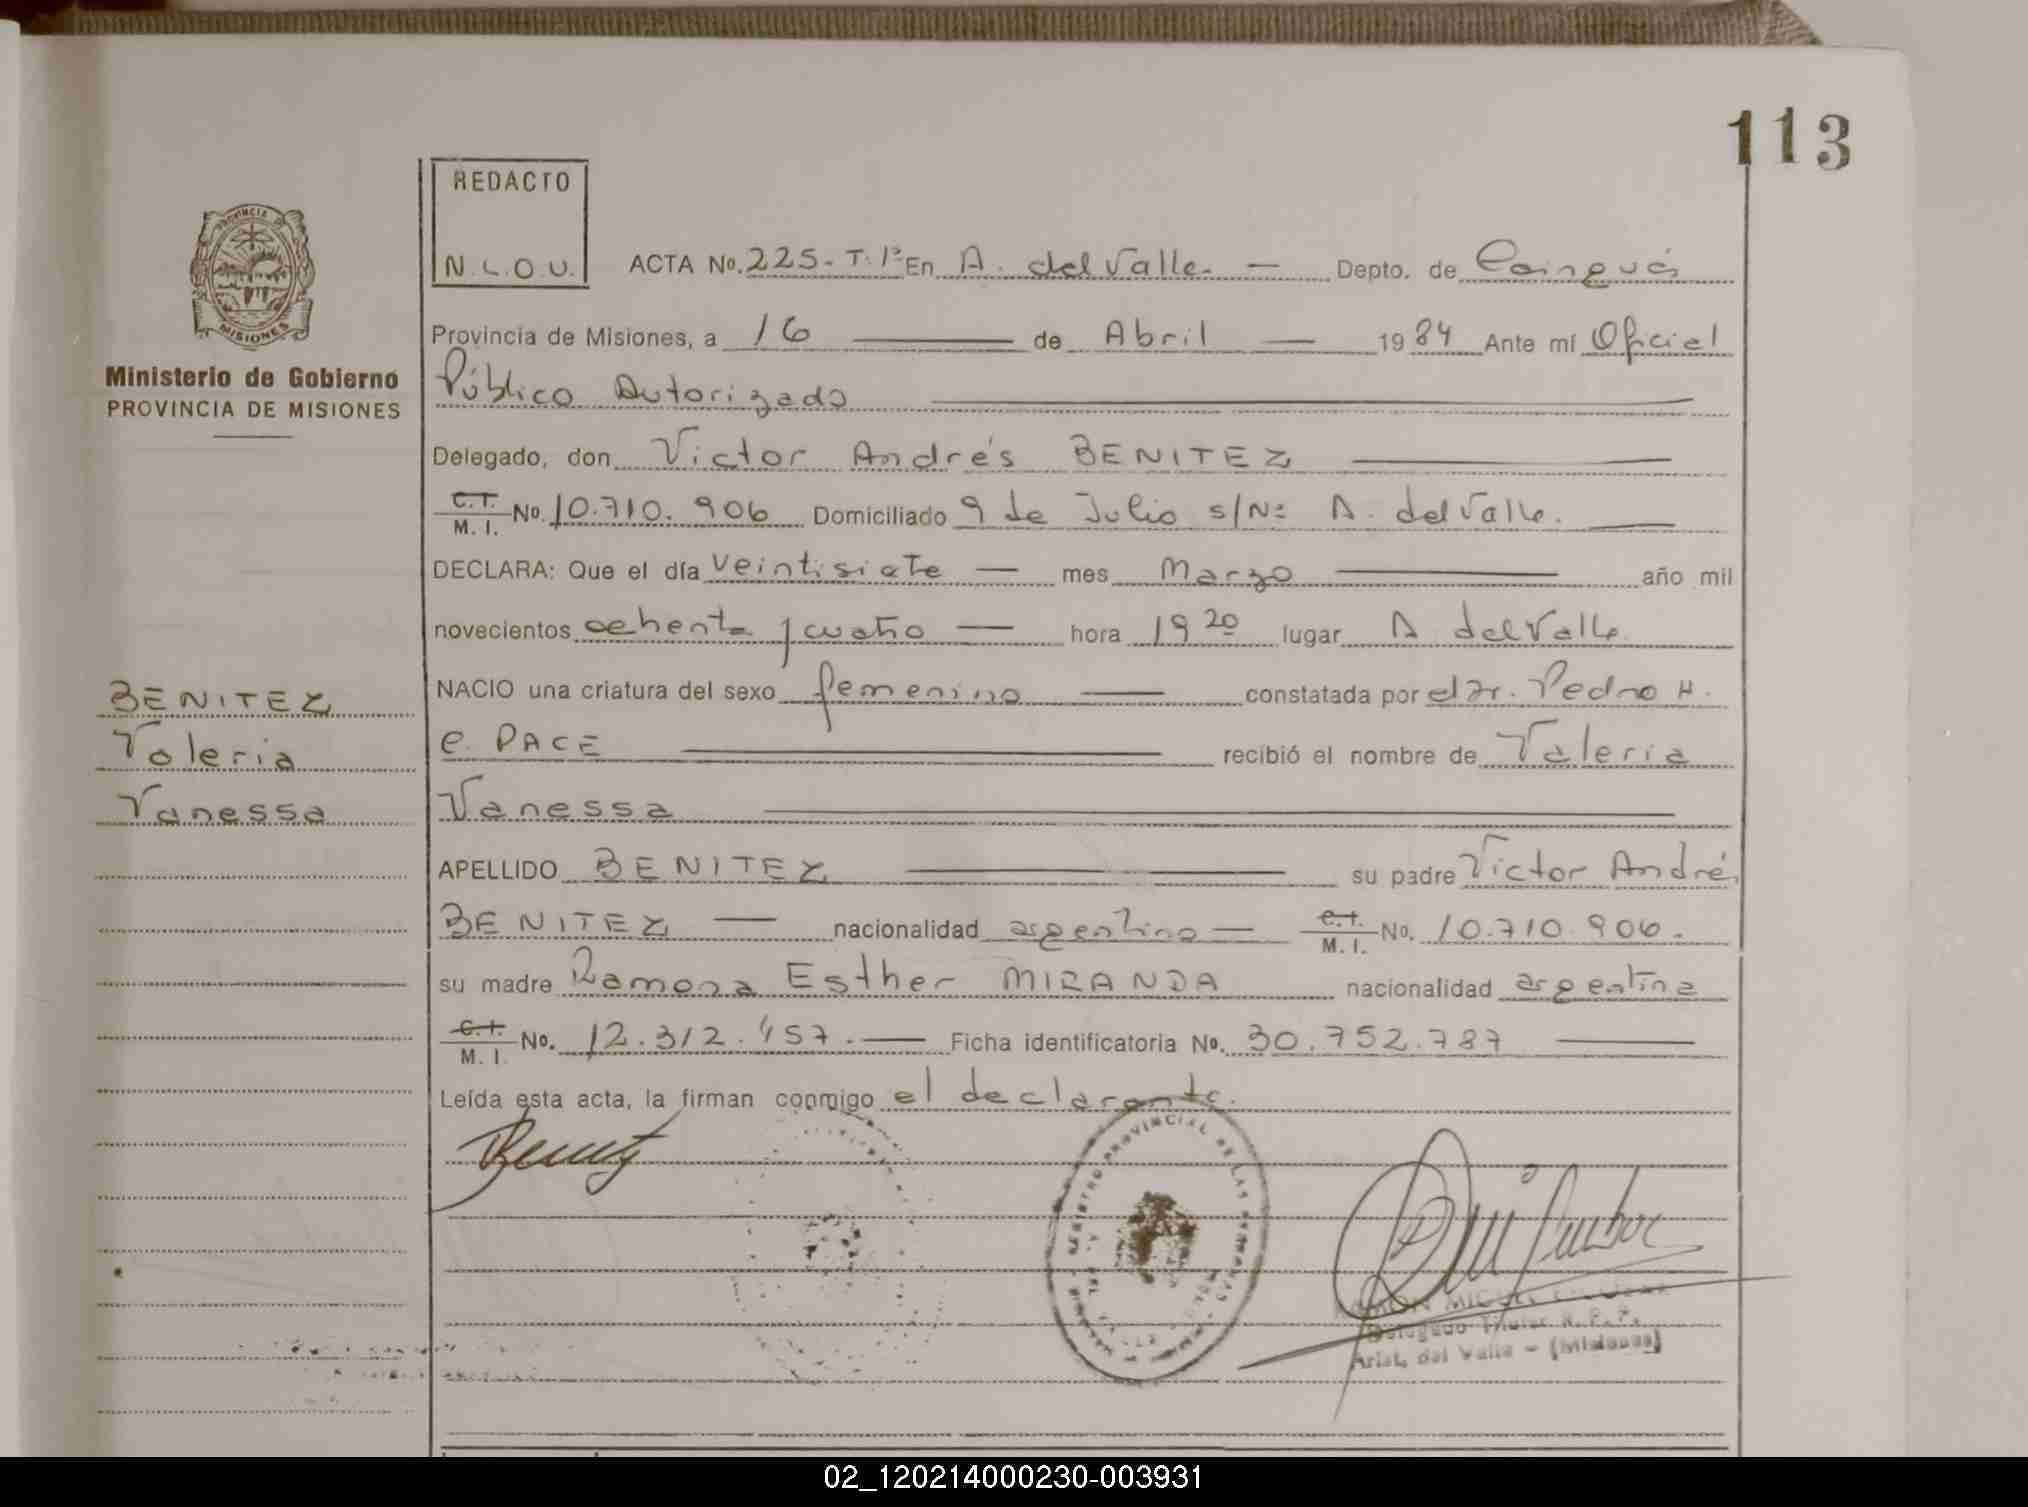 113
REDACTO
N.L.O.U.
ACTA No. 225- T. 1º En A. del Valle. — Depto. de Cainguás
Provincia de Misiones, a 16 — de Abril — 1984 Ante mí Oficial
Público Autorizado
PROVINCIA DE
MISIONES
Ministerio de Gobierno
PROVINCIA DE MISIONES
Delegado, don Victor Andrés BENITEZ
C.T. M. I. No. 10.710.906 Domiciliado 9 de Julio s/Nº A. del Valle.
DECLARA: Que el día veintisiete — mes Marzo — año mil
novecientos ochenta y cuatro — hora 19 20 lugar A. del Valle.
BENITEZ
Valeria
Vanessa
NACIO una criatura del sexo femenino — constatada por el Dr. Pedro H.
e. PACE — recibió el nombre de Valeria
Vanessa
APELLIDO BENITEZ — su padre Victor Andrés
BENITEZ — nacionalidad argentino — C.I. M. I. No. 10.710.906.
su madre Ramona Esther MIRANDA nacionalidad argentina
C.I. M. I. No. 12.312.457. — Ficha identificatoria No. 30.752.787
Leída esta acta, la firman conmigo el declarante.
REGISTRO PROVINCIAL DE LAS PERSONAS
Delegado Titular R. P. P.
Arist. del Valle - (Misiones)
02_120214000230-003931